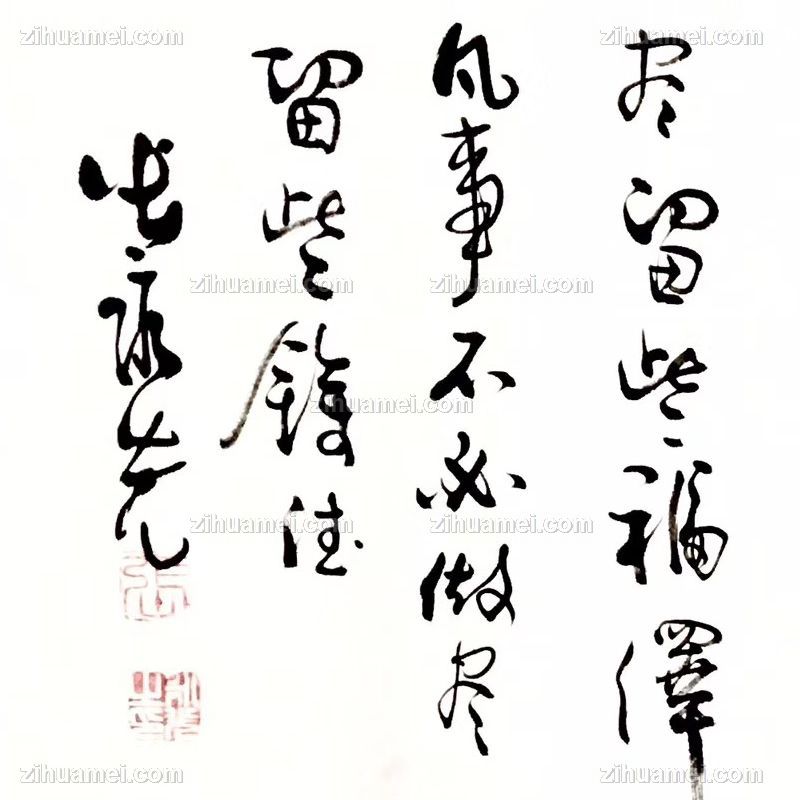 尽留些福泽
凡事不必做尽
留些馀德
zihuamei.com
zihuamei.com
zihuamei.com
zihuamei.com
zihuamei.com
zihuamei.com
zihuamei.com
zihuamei.com
zihuamei.com
zihuamei.com